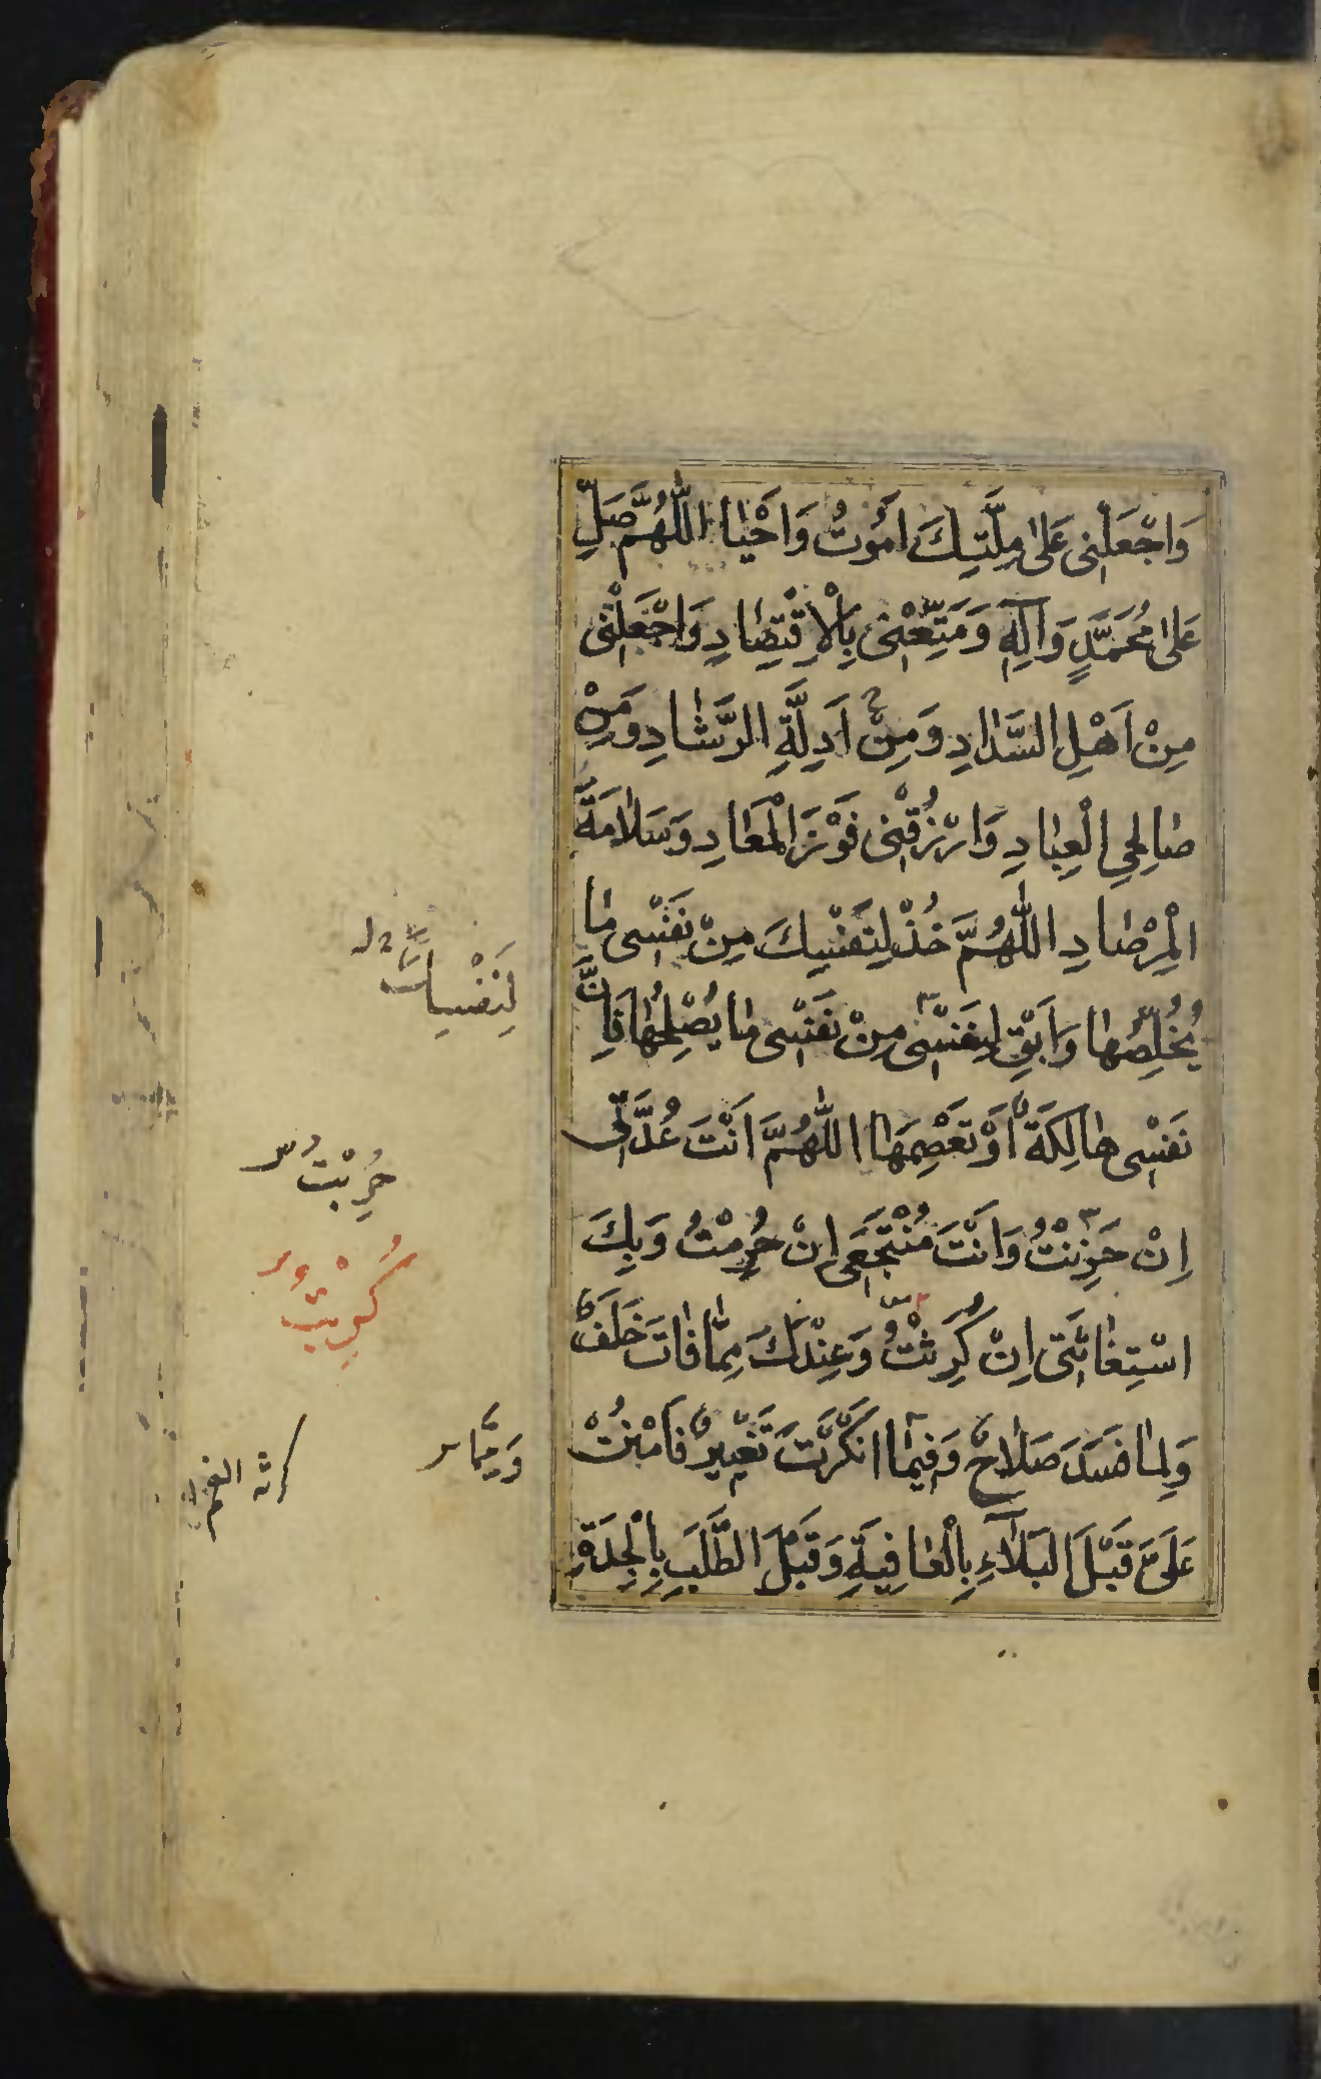 وَاجْعَلْنِی عَلیٰ مِلَّتِكَ اَمُوتُ وَاَحْیَا اللّٰهُمَّ صَلِّ
عَلیٰ مُحَمَّدٍ وَآلِهِ وَمَتِّعْنِی بِالْاِقْتِصَادِ وَاجْعَلْنِی
مِنْ اَهْلِ السَّدَادِ وَمِنْ اَدِلَّةِ الرَّشَادِ وَمِنْ
صَالِحِی الْعِبَادِ وَارْزُقْنِی فَوْزَ الْمَعَادِ وَسَلَامَةَ
الْمِرْصَادِ اللّٰهُمَّ خُذْ لِنَفْسِكَ مِنْ نَفْسِی مَا
یُخَلِّصُهَا وَاَبْقِ لِنَفْسِی مِنْ نَفْسِی مَا یُصْلِحُهَا فَاِنَّ
نَفْسِی هَالِكَةٌ اَوْ تَعْصِمَهَا اللّٰهُمَّ اَنْتَ عُدَّتِی
اِنْ حَزِنْتُ وَاَنْتَ مُنْتَجَعِی اِنْ حُرِمْتُ وَبِكَ
اسْتِغَاثَتِی اِنْ كُرِثْتُ وَعِنْدَكَ مِمَّا فَاتَ خَلَفٌ
وَلِمَا فَسَدَ صَلَاحٌ وَفِیمَا اَنْكَرْتَ تَغْیِیرٌ فَامْنُنْ
عَلَیَّ قَبْلَ الْبَلَآءِ بِالْعَافِیَةِ وَقَبْلَ الطَّلَبِ بِالْجِدَةِ
لِنَفْسِكَ
حُرِبْتُ
كُرِبْتُ
وَمِمَّا
كرثه الغم